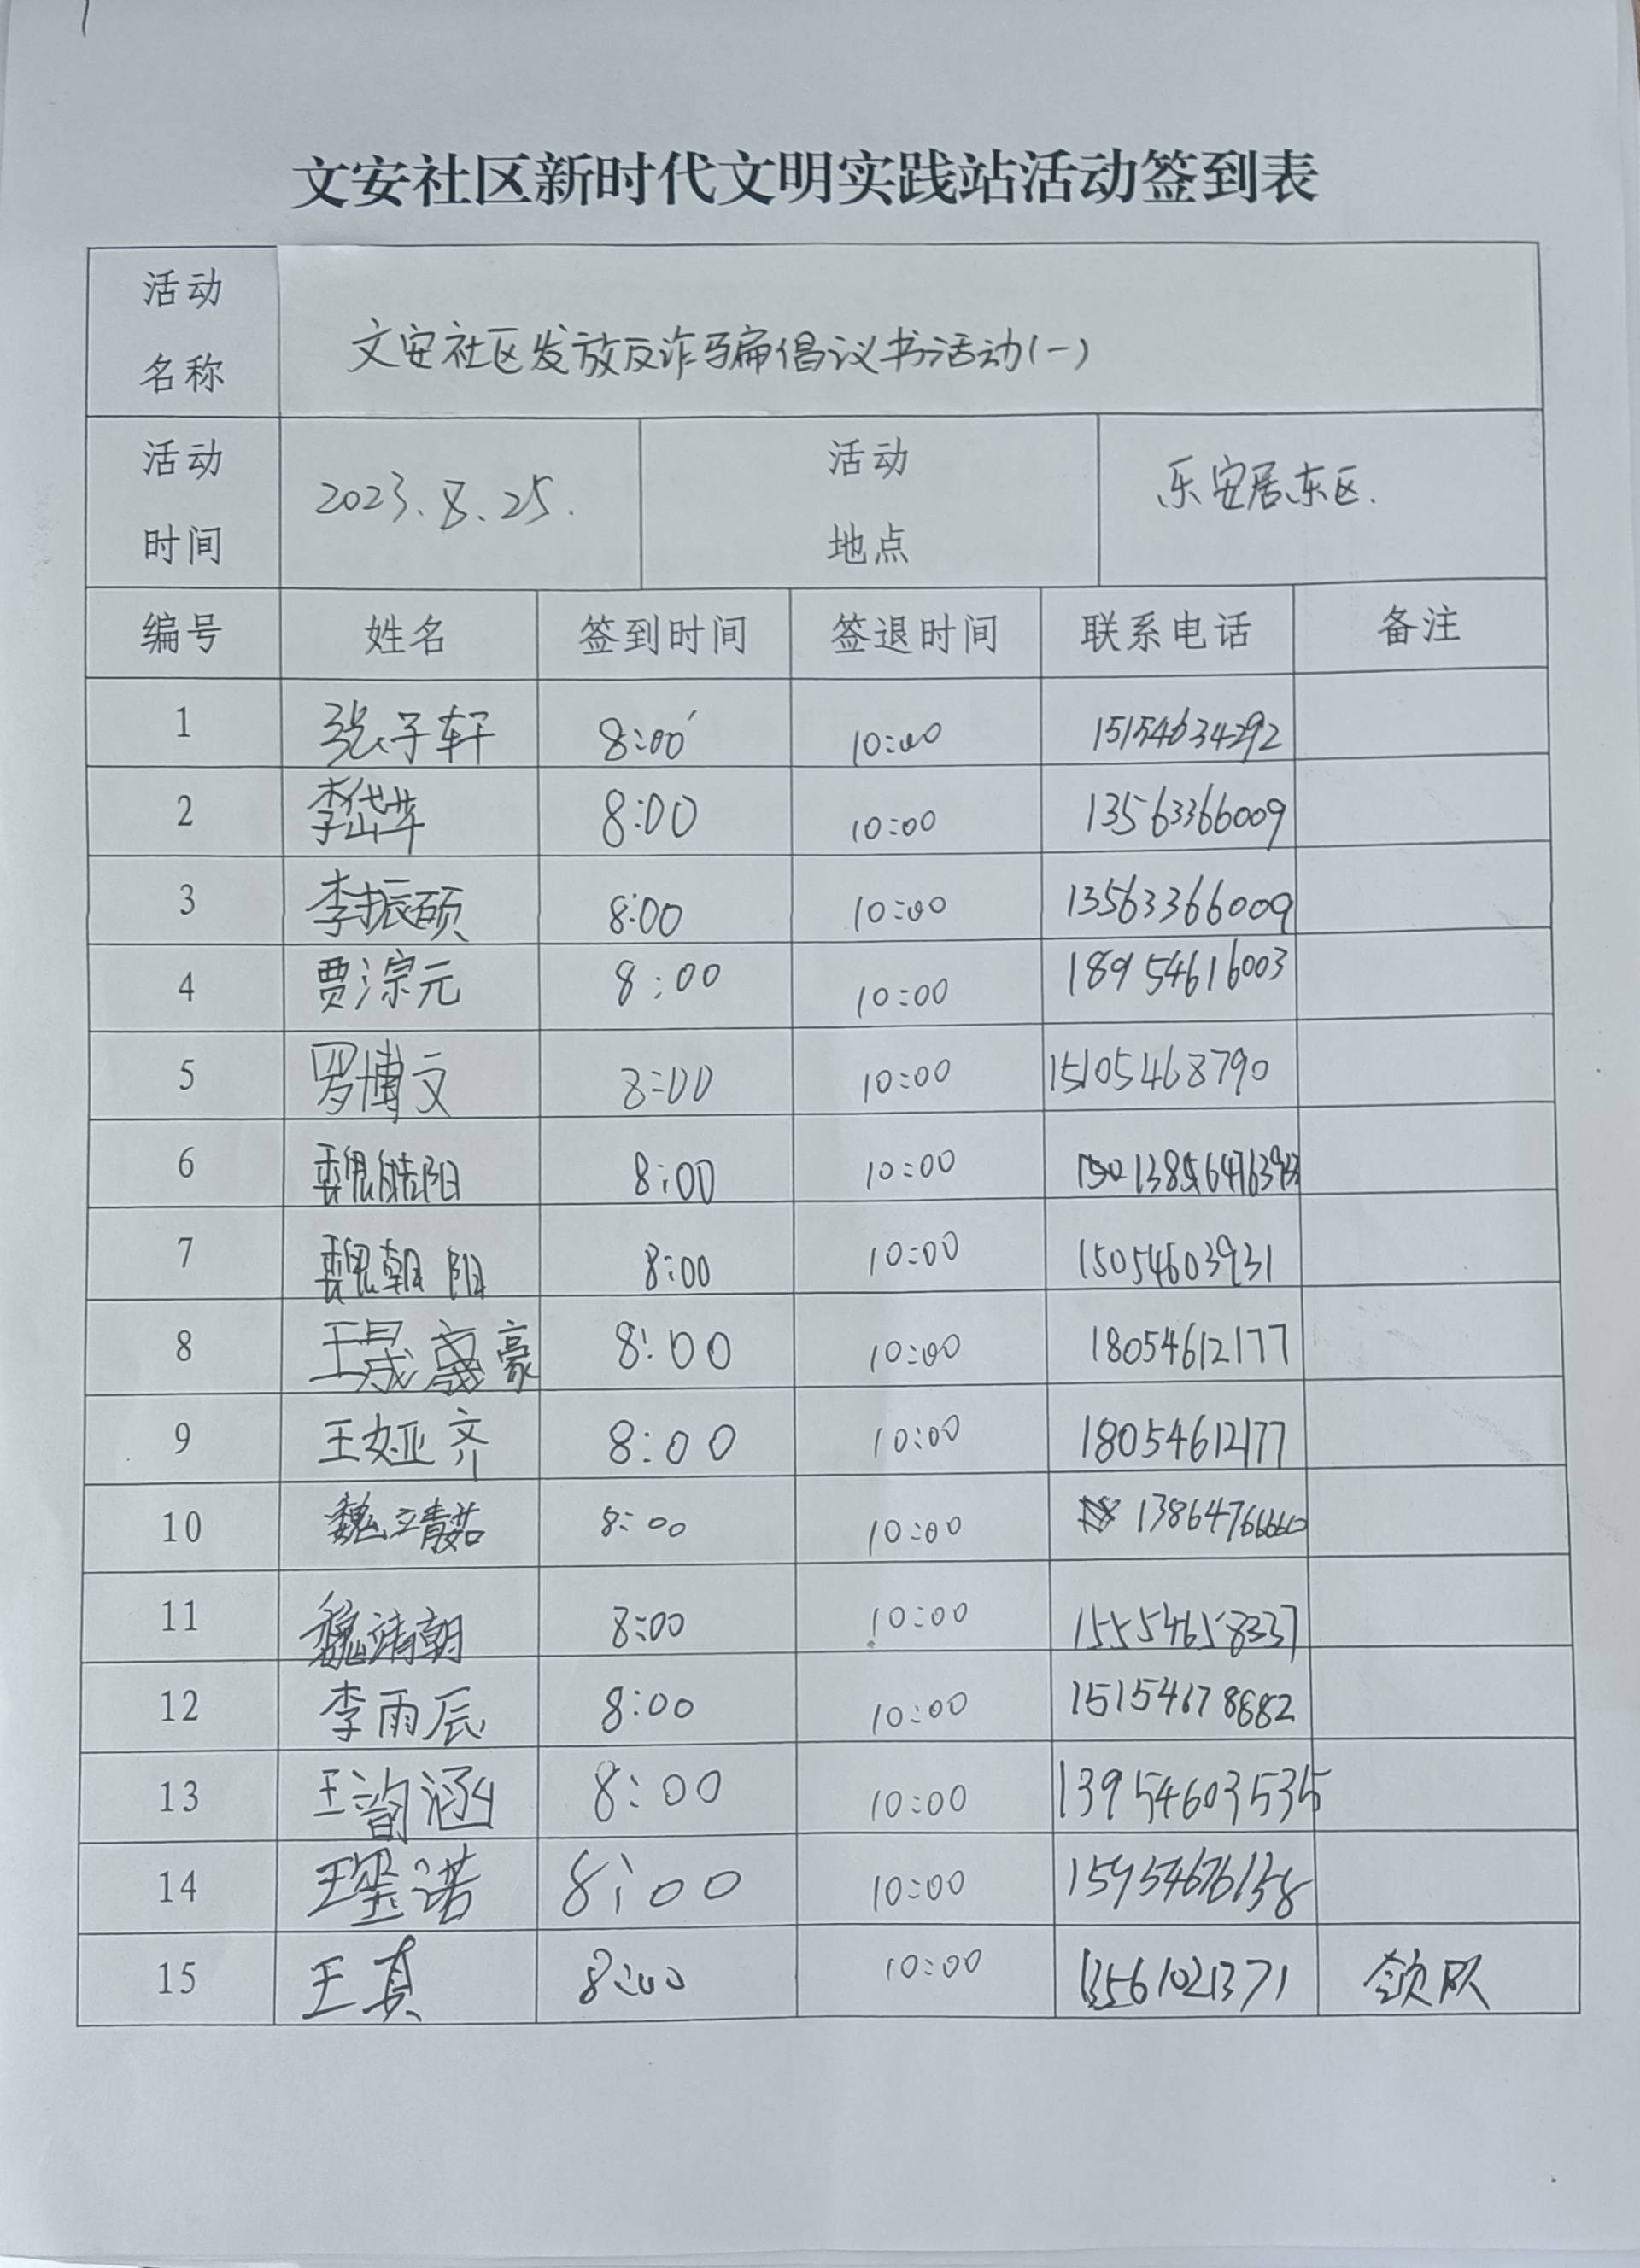 文安社区新时代文明实践站活动签到表
活动名称 文安社区发放反诈骗倡议书活动(一)
活动时间 2023.8.25. 活动地点 乐安居东区.
编号 姓名 签到时间 签退时间 联系电话 备注
1 张子轩 8:00 10:00 15154634292
2 李岱苹 8:00 10:00 13563366009
3 李振硕 8:00 10:00 13563366009
4 贾淙元 8:00 10:00 18954616003
5 罗博文 8:00 10:00 15105468790
6 魏皓阳 8:00 10:00
7 魏朝阳 8:00 10:00 15054603931
8 王晟豪 8:00 10:00 18054612177
9 王娅齐 8:00 10:00 18054612177
10 魏靖茹 8:00 10:00
11 魏靖朝 8:00 10:00 15554658337
12 李雨辰 8:00 10:00 15154678882
13 王韵涵 8:00 10:00 13954603535
14 诺 8:00 10:00
15 王真 8:00 10:00 13561021371 领队